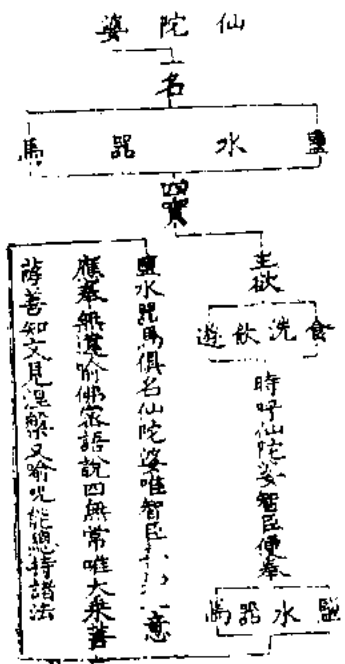 仙陀婆
一名
鹽水器馬
四實
主欲
食洗飲遊
時呼仙陀婆智臣便奉
鹽水器馬
鹽水器馬俱名仙陀婆唯智臣意
應奉無違喻佛密語說四無常唯大乘菩
薩善知文見涅槃又喻呪能總持諸法